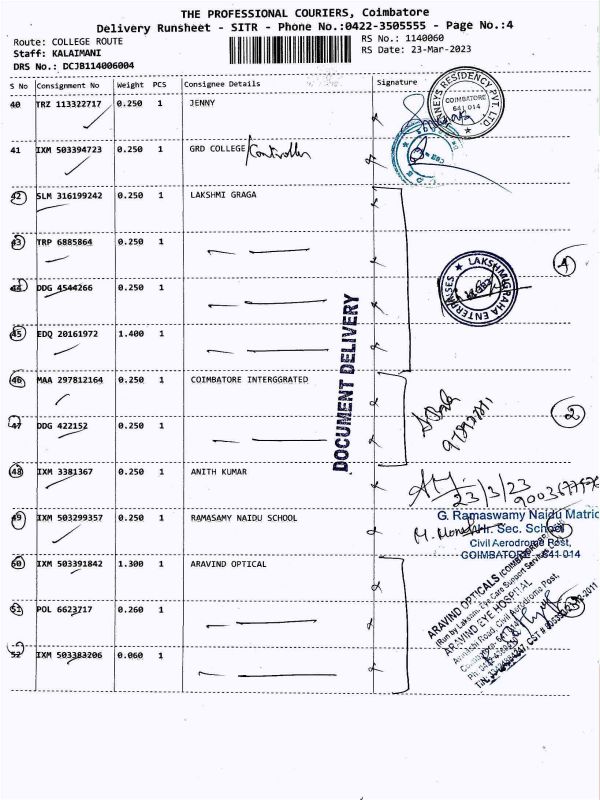 THE PROFESSIONAL COURIERS, Coimbatore
Delivery Runsheet - SITR - Phone No.:0422-3505555 - Page No.:4
Route: COLLEGE ROUTE RS No.: 1140060
Staff: KALAIMANI RS Date: 23-Mar-2023
DRS No.: DCJB114006004
S No Consignment No Weight PCS Consignee Details Signature
40 TRZ 113322717 0.250 1 JENNY
RESIDENCY PVT. LTD
COIMBATORE
641 014
41 IXM 503394723 0.250 1 GRD COLLEGE/Controller
42 SLM 316199242 0.250 1 LAKSHMI GRAGA
43 TRP 6885864 0.250 1
LAKSHMIGRAHA ENTERPRISES
4
44 DDG 4544266 0.250 1
45 EDQ 20161972 1.400 1
DOCUMENT DELIVERY
46 MAA 297812164 0.250 1 COIMBATORE INTERGGRATED
2
47 DDG 422152 0.250 1
48 IXM 3381367 0.250 1 ANITH KUMAR
23/3/23
49 IXM 503299357 0.250 1 RAMASAMY NAIDU SCHOOL
G. Ramaswamy Naidu Matric
Hr. Sec. School
Civil Aerodrome Post,
COIMBATORE - 641 014
50 IXM 503391842 1.300 1 ARAVIND OPTICAL
ARAVIND OPTICALS (COIMBATORE)
(Run by Laksmi Eye Care Support Services)
ARAVIND EYE HOSPITAL
Avinashi Road, Civil Aerodrome Post,
51 POL 6623717 0.260 1
52 IXM 503383206 0.060 1